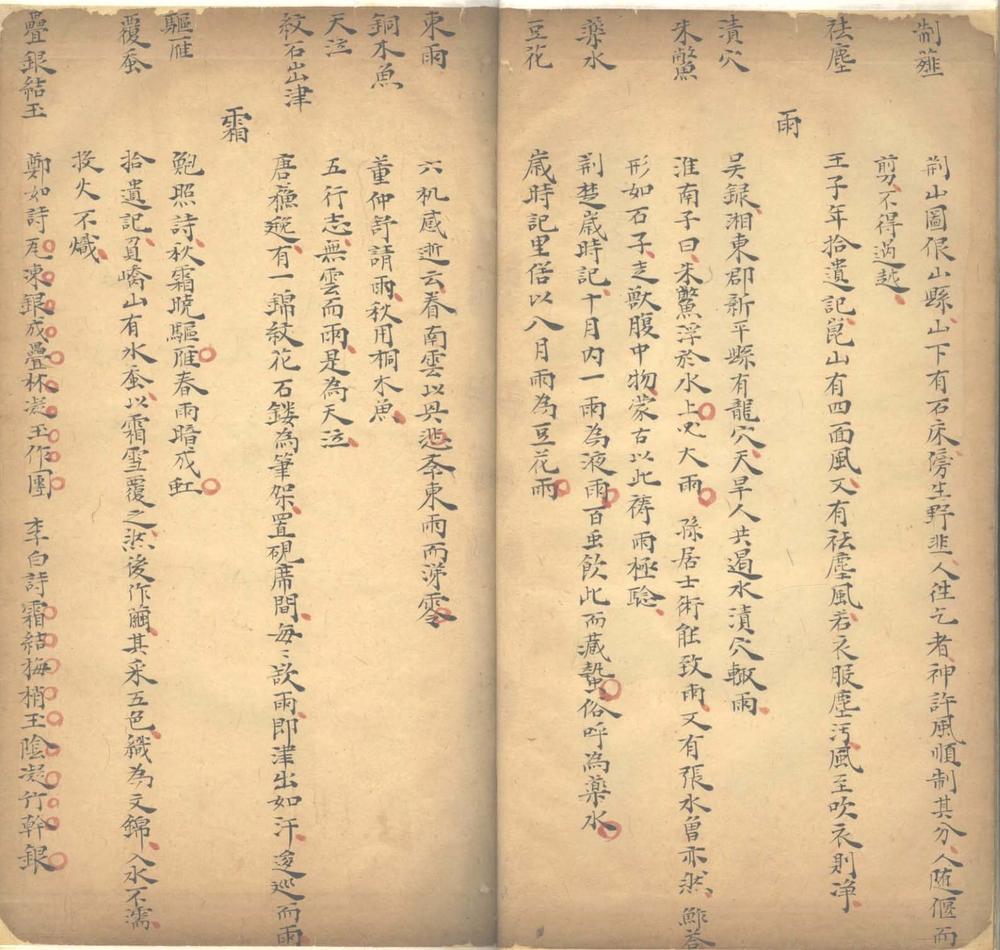 制薤
荊山圖佷山縣山下有石床傍生野韭人往乞者神許風順制其分人随偃而
剪不得過越
祛塵
王子年拾遺記崑山有四面風又有祛塵風若衣服塵污風至吹衣則净
雨
吳録湘東郡新平縣有龍穴天旱人共遏水漬穴輙雨
漬穴
朱鱉
淮南子曰朱鱉浮於水上必大雨 孫居士術能致雨又有張水曾亦然 鮓荅
形如石子走獸腹中物蒙古以此祷雨極騐
藥水
荆楚嵗時記十月内一雨為液雨百虫飲此而藏蟄俗呼為藥水
豆花
嵗時記里俗以八月雨為豆花雨
東雨
六机感逝云眷南雲以興悲奉東雨而涕零
銅木魚
董仲舒請雨秋用桐木魚
天泣
五行志無雲而雨是為天泣
紋石出津
唐蘓逸有一錦紋花石鏤為筆架置硯席間每〻欲雨即津出如汗逡巡而雨
霜
驅雁
鮑照詩秋霜曉驅雁春雨暗成虹
覆蚕
拾遺記員嶠山有水蚕以霜雪覆之然後作繭其采五色織為文錦入水不濡
投火不熾
疊銀結玉
鄭如詩瓦凍銀成疊林凝玉作團 李白詩霜結梅梢玉陰凝竹幹銀